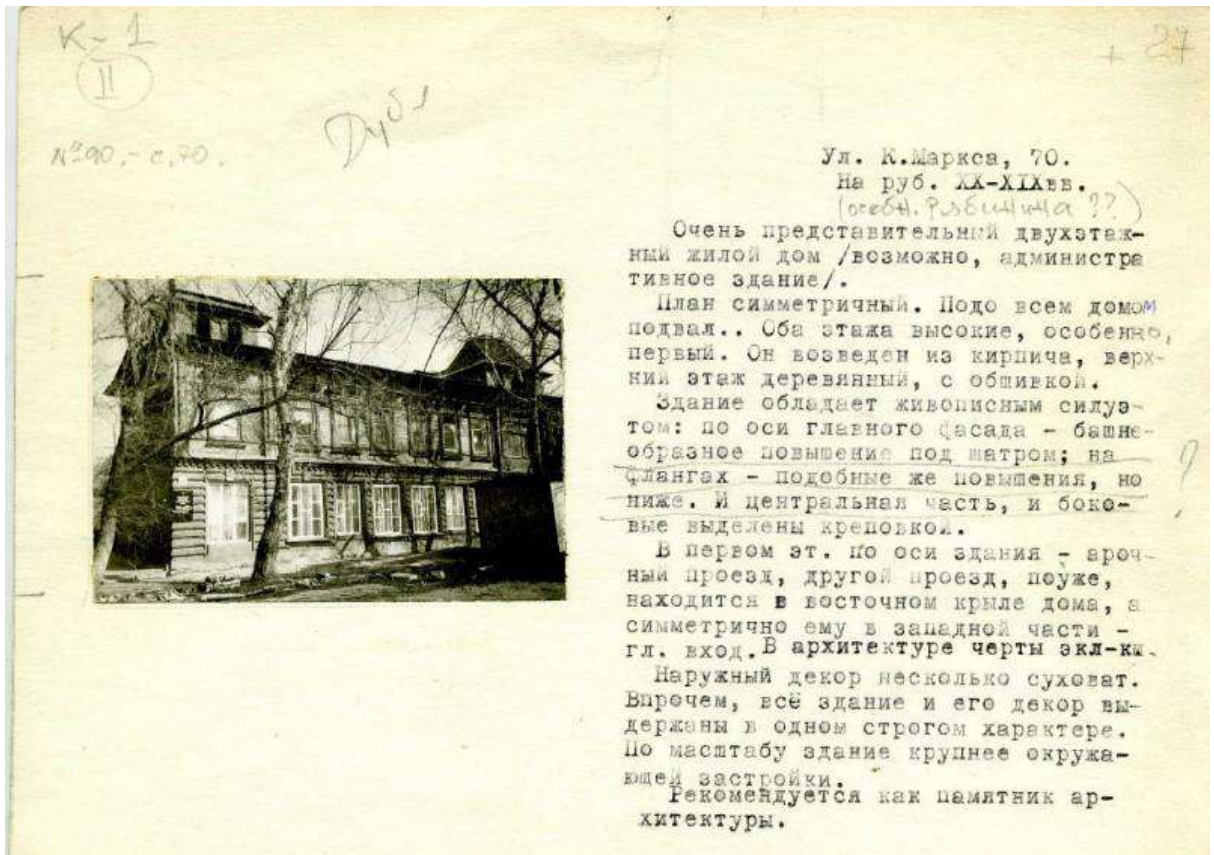 К-1
II
+ 27
Дубл
№90.-с.70.
Ул. К.Маркса, 70.
На руб. XX-XIXвв.
(особн. Рябинина ??)
Очень представительный двухэтаж-
ный жилой дом /возможно, администра
тивное здание/.
План симметричный. Подо всем домом
подвал.. Оба этажа высокие, особенно,
первый. Он возведен из кирпича, верх-
ний этаж деревянный, с обшивкой.
Здание обладает живописным силуэ-
том: по оси главного фасада - башне-
образное повышение под шатром; на
флангах - подобные же повышения, но
ниже. И центральная часть, и боко-
вые выделены креповкой.
?
В первом эт. по оси здания - ароч-
ный проезд, другой проезд, поуже,
находится в восточном крыле дома, а
симметрично ему в западной части -
гл. вход. В архитектуре черты экл-ки.
Наружный декор несколько суховат.
Впрочем, всё здание и его декор вы-
держаны в одном строгом характере.
По масштабу здание крупнее окружа-
ющей застройки.
Рекомендуется как памятник ар-
хитектуры.